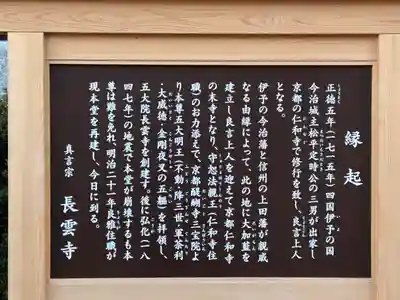 縁起
正徳五年（一七一五年）四国伊予の国
今治城主松平定時公の三男が出家し
京都の仁和寺で修行を致し、良言上人
となる。
伊予の今治藩と信州の上田藩が親戚
なる由縁によって、此の地に大加藍を
建立し良言上人を迎えて京都仁和寺
の末寺となり、守恕法親王（仁和寺住
職）のお力添えで、京都醍醐寺三宝院よ
り本尊五大明王（不動・降三世・軍荼利
・大威徳・金剛夜叉の五軀）を拝領し、
五大院長雲寺を創建す。後に弘化（一八
四七年）の地震で本堂が崩壊するも本
尊は難を免れ、明治二十一年良雅住職が
現本堂を再建し、今日に到る。
真言宗 長雲寺